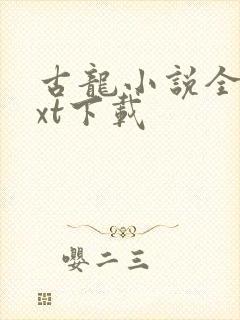 古龍小説全
xt下載
嬰二三